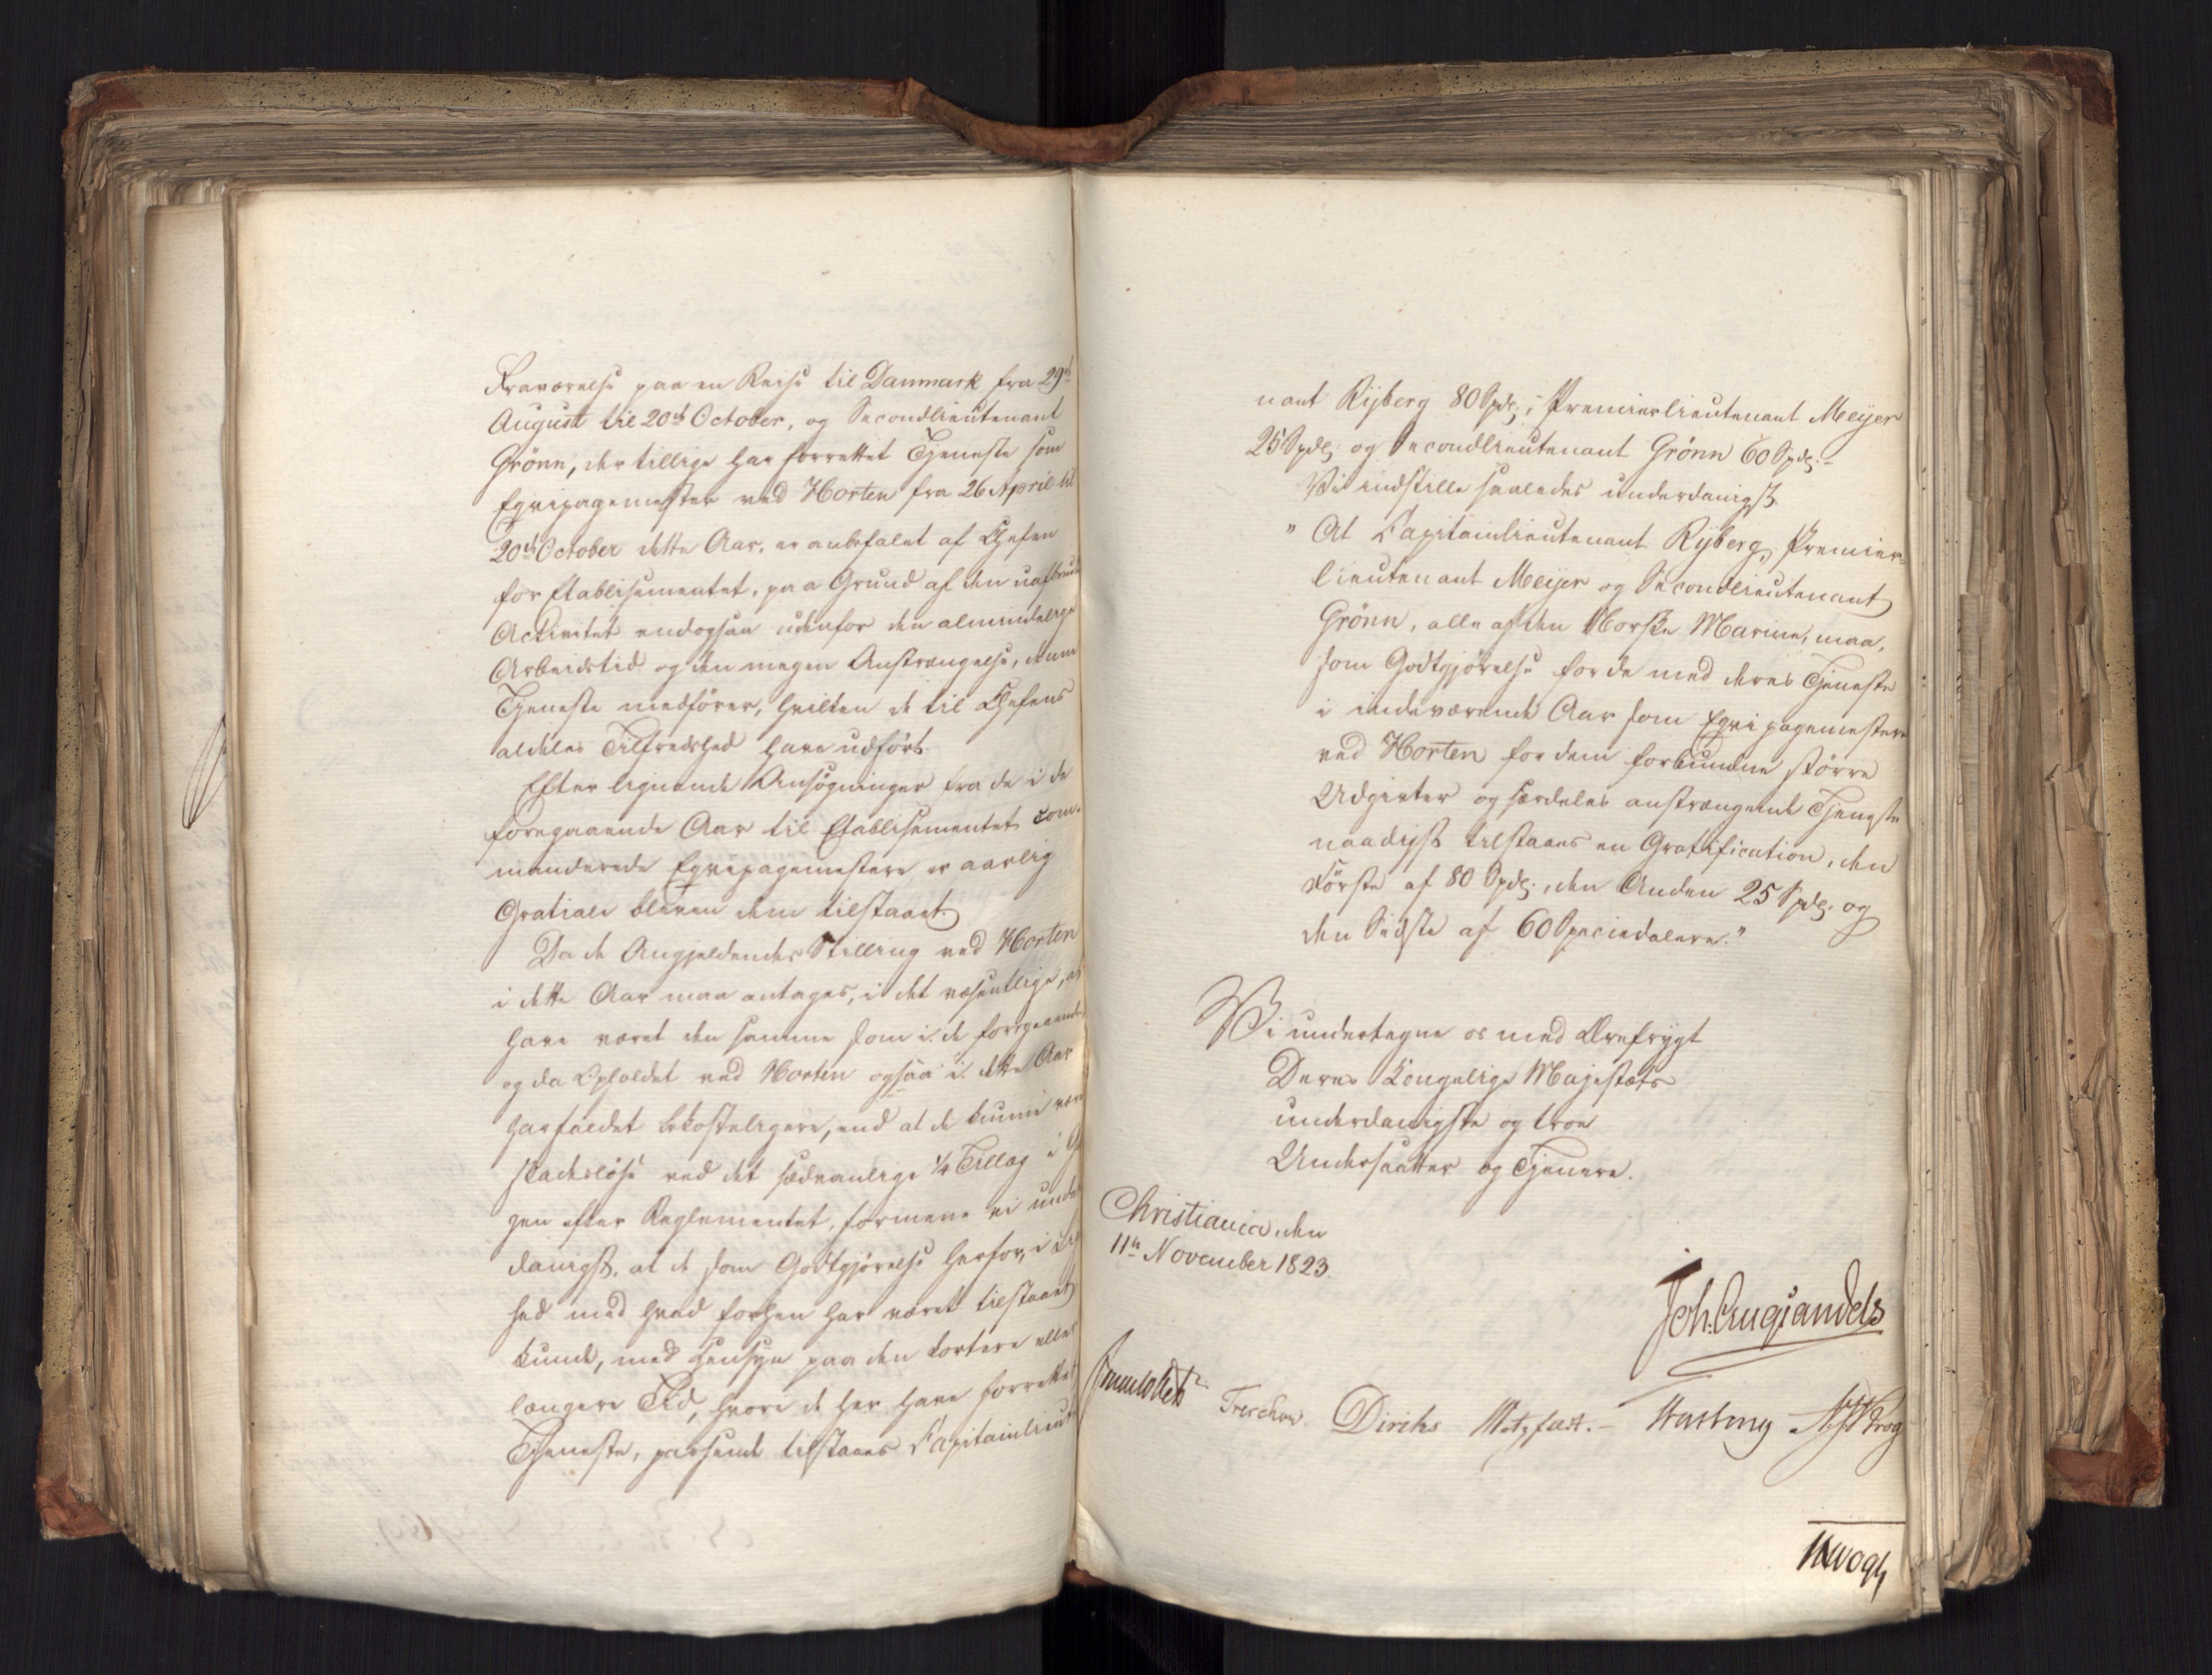 Fraværelse paa en Reise til Danmark fra 29de
August til 20de October, og Secondlieutenant
Grönn, der tillige har forrettet Tjeneste som
Eqvipagemester ved Horten fra 26 April til
20de October dette Aar, er anbefalet af Chefen
for Etablisementet, paa Grund af den uafbrudte
Activitet endogsaa udenfor den almindelige
Arbeidstid og den megen Anstrængelse, denne
Tjeneste medfører, hvilken de til Chefens
aldeles Tilfredshed have udført.
Efter lignende Ansøgninger fra de i de
foregaaende Aar til Etablisementet com-
manderede Eqvipagemestere er aarlig
Gratiale bleven dem tilstaaet.
Da de Angjeldendes Stilling ved Horten
i dette Aar maa antages, i det væsentlige, at
have været den samme som i de foregaaende,
og da Opholdet ved Horten ogsaa i dette Aar
har faldet bekosteligere, end at de kunne være
skadesløse ved det sædvanlige 1/4 Tillæg i
gen efter Reglementet, formene vi under
danigst, at de som Godtgjørelse herfor, i Lig
hed med hvad forhen har været tilstaaet
kunde, med Hensyn paa den kortere eller
længere Tid, hvori de her have forrettet
Tjeneste, passende tilstaaes Capitainlieute
nant Rijberg 80 Spdlr, Premierlieutenant Meijer
25 Spdlr. og Secondlieutenant Grönn 60 Spdlr.-
Vi indstille saaledes underdanigst
" At Capitainlieutenant Rijberg, Premier-
lieutenant Meijer og Secondlieutenant
Grönn, alle af den Norske Marine, maa,
som Godtgjørelse for de med deres Tjeneste
i indeværende Aar som Eqvipagemestere
ved Horten for dem forbundne større
Udgivter og særdeles anstrængende Tjeneste
naadigst tilstaaes en Gratification, den
Første af 80 Spdlr., den Anden 25 Spdlr. og
den Sidste af 60 Speciedalere."
Vi undertegne os med Ærefrygt
Deres Kongelige Majestæts
underdanigste og troe
Undersaatter og Tjenere.
Christiania, den
11te November 1823.
Joh: Aug: Sandels
Sommelhielm Treschow Diriks Motzfeldt.- Fasting Krog